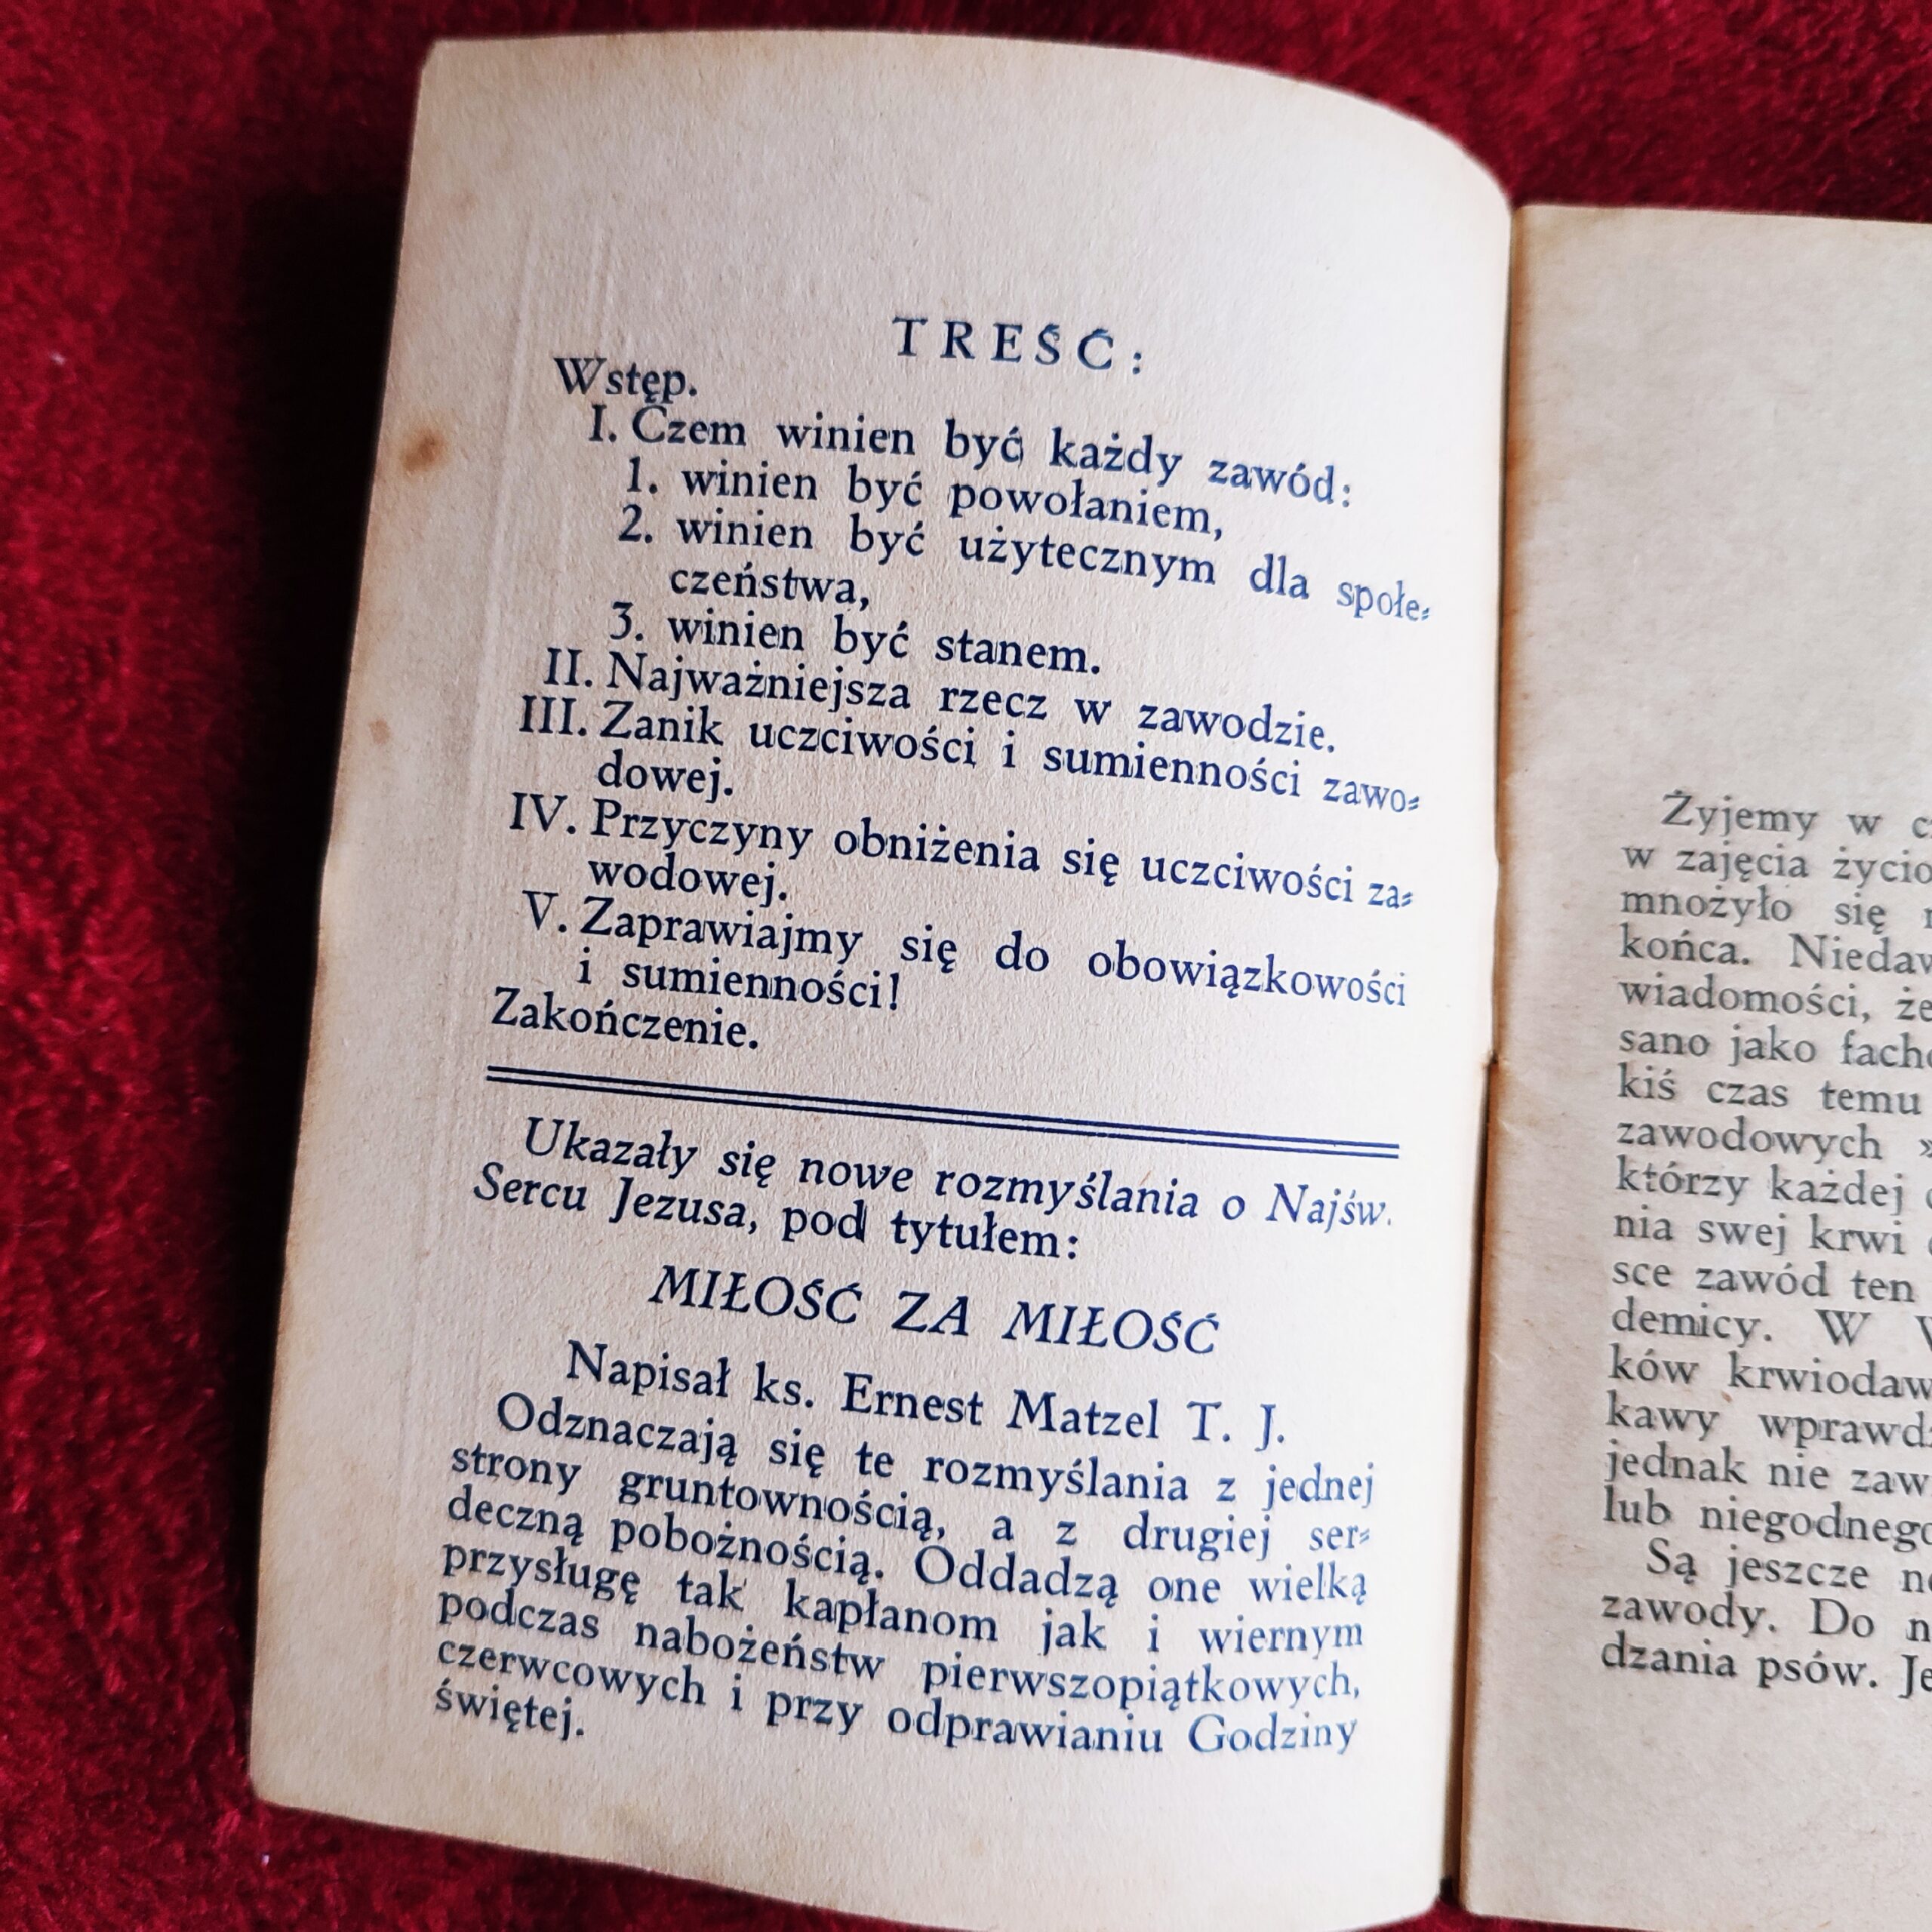 TREŚĆ:
Wstęp.
I. Czem winien być każdy zawód:
1. winien być powołaniem,
2. winien być użytecznym dla społe-
czeństwa,
3. winien być stanem.
II. Najważniejsza rzecz w zawodzie.
III. Zanik uczciwości i sumienności zawo-
dowej.
IV. Przyczyny obniżenia się uczciwości za-
wodowej.
V. Zaprawiajmy się do obowiązkowości
i sumienności!
Zakończenie.
Ukazały się nowe rozmyślania o Najśw.
Sercu Jezusa, pod tytułem:
MIŁOŚĆ ZA MIŁOŚĆ
Napisał ks. Ernest Matzel T. J.
Odznaczają się te rozmyślania z jednej
strony gruntownością, a z drugiej ser-
deczną pobożnością. Oddadzą one wielką
przysługę tak kapłanom jak i wiernym
podczas nabożeństw pierwszopiątkowych,
czerwcowych i przy odprawianiu Godziny
świętej.
Żyjemy w
w zajęcia
mnożyło się
końca.
wiadomości,
sano jako
kiś czas temu
zawodowych »
którzy każdej
nia swej krwi
sce zawód ten
demicy. W
ków
kawy
jednak nie
lub
Są jeszcze
zawody. Do
dzania psów.